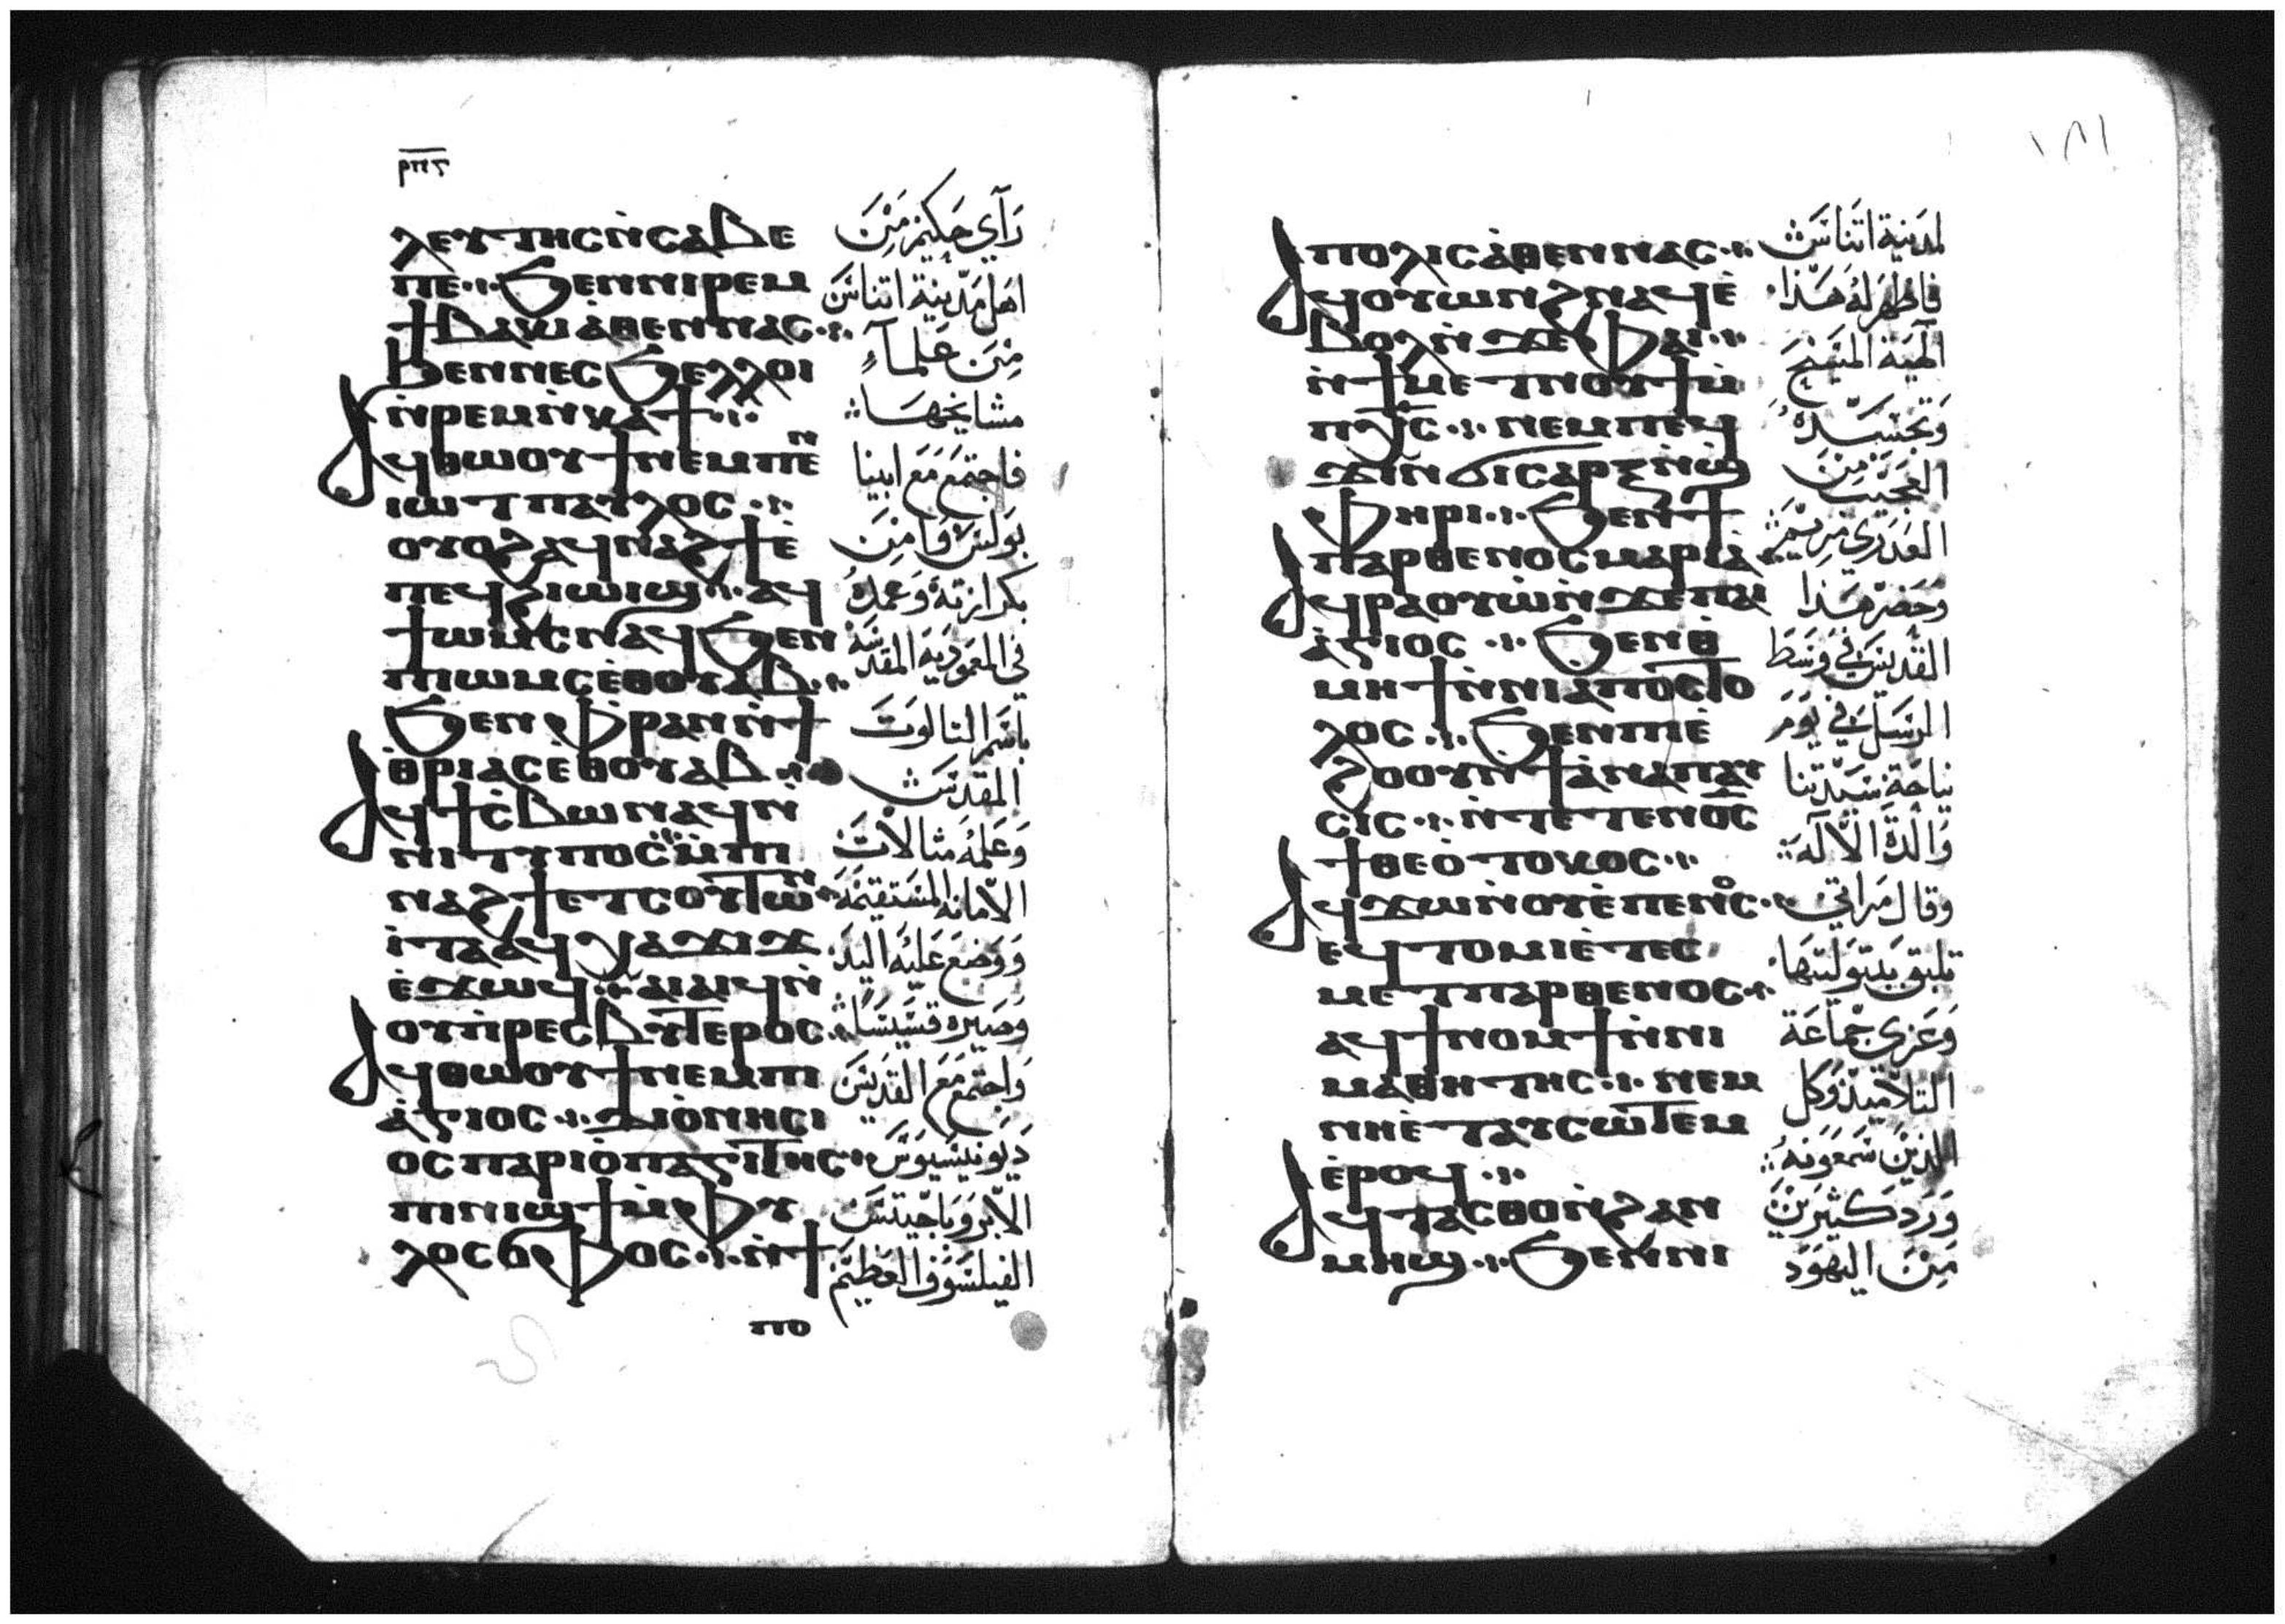 ⲣⲡⲍ
ⲗⲉⲩⲧⲏⲥ ⲛ̀ⲥⲁⲃⲉ
ⲡⲉ ϧⲉⲛ ⲛⲓⲣⲉⲙ
ϯⲃⲁⲕⲓ ⲁⲑⲉⲛⲛⲁⲥ
ϧⲉⲛ ⲛⲉⲥϧⲉⲗⲗⲟⲓ
ⲛ̀ⲣⲉⲙⲛ̀ⲕⲁϯ
ⲁϥⲑⲱⲟⲩϯ ⲛⲉⲙ ⲡⲉⲛ
ⲓⲱⲧ ⲡⲁⲩⲗⲟⲥ
ⲟⲩⲟϩ ⲁϥⲛⲁϩϯ ⲉ̀
ⲡⲉϥϩⲓⲱⲓϣ ⲁϥ
ϯⲱⲙⲥ ⲛⲁϥ ϧⲉⲛ
ⲡⲓⲱⲙⲥ ⲉ̀ⲑⲟⲩⲁⲃ
ϧⲉⲛ ⲫⲣⲁⲛ ⲛ̀ϯ
ⲑ̀ⲣⲓⲁⲥ ⲉ̀ⲑⲟⲩⲁⲃ
ⲁϥϯⲥ̀ⲃⲱ ⲛⲁϥ ⲛ̀
ⲛⲓⲧⲩⲡⲟⲥ ⲙ̀ⲡⲓ
ⲛⲁϩϯ ⲉⲧⲥⲟⲩⲧⲱⲛ
ⲓ̀ⲧⲁ ⲁϥⲭⲁϫⲓϫ
ⲉ̀ϫⲱϥ ⲁⲓⲁⲓϥ ⲛ̀
ⲟⲩⲡ̀ⲣⲉⲥⲃⲩⲧⲉⲣⲟⲥ
ⲁϥⲑⲱⲟⲩϯ ⲛⲉⲙ ⲡⲓ
ⲁ̀ⲅⲓⲟⲥ ⲇⲓⲟ̀ⲛⲏⲥⲓ
ⲟⲥ ⲡⲁⲣⲓⲟ̀ⲡⲁⲅⲓⲧⲏⲥ
ⲡⲓⲛⲓϣϯ ⲙ̀ⲫⲩ
ⲗⲟⲥⲟⲫⲟⲥ ⲛ̀ϯ
ⲡⲟ
رَآي حَكيمْ مَنْ
اهَل مَدينة اتناسَ
مِنَ عَلمآءِ
مشايخهَا
فاجتمَع مَع ابينا
بَولسَ وَامَنَ
بكرازتهُ وَعَمدهُ
في المعَموديَه المقدَسَه
باسَم التالوَت
المقدسَ
وَعَلمُه مثالاتَ
الامانه المسَتقيمَه
وَوَضعَ عَليُه اليَدَ
وَصَيره قسَيسَا
وَاجتمَع مَع القدَيسَ
دَيَونيسَيوسَ
الاريَوباجيتسَ
الفيلسَوف العَظيَم
١٨١
ⲡⲟⲗⲓⲥ ⲁⲑⲉⲛⲛⲁⲥ
ⲁϥⲟⲩⲱⲛϩ ⲛⲁϥ ⲉ̀
ⲃⲟⲗ ⲛ̀ϫⲉ ⲫⲁⲓ
ⲛ̀ϯⲙⲉⲧⲛⲟⲩϯ ⲙ̀
ⲡⲭⲥ ⲛⲉⲙ ⲡⲉϥ
ϫⲓⲛϭⲓⲥⲁⲣⲝ ⲛ̀ϣ
ⲫⲏⲣⲓ ϧⲉⲛ ϯ
ⲡⲁⲣⲑⲉⲛⲟⲥ ⲙⲁⲣⲓⲁ
ⲁϥⲣⲁⲟⲩⲱ̀ ⲛ̀ϫⲉ ⲡⲁⲓ
ⲁ̀ⲅⲓⲟⲥ ϧⲉⲛ ⲑ
ⲙⲏϯ ⲛ̀ⲛⲓⲁⲡⲟⲥⲧⲟ
ⲗⲟⲥ ϧⲉⲛ ⲡⲓⲉ̀
ϩⲟⲟⲩ ⲛ̀ϯⲁⲛⲁⲡⲁⲩ
ⲥⲓⲥ ⲛ̀ⲧⲉ ⲧⲉⲛⲟ̅ⲥ̅
ϯⲑⲉⲟ̀ⲧⲟⲕⲟⲥ
ⲁϥϫⲱ ⲛ̀ⲟⲩⲉ̀ⲡⲉⲛⲟⲥ
ⲉϥⲧⲟⲙⲓ ⲉ̀ⲧⲉⲥ
ⲙⲉⲧⲡⲁⲣⲑⲉⲛⲟⲥ
ⲁϥϯⲛⲟⲙϯ ⲛ̀ⲛⲓ
ⲙⲁⲑⲏⲧⲏⲥ ⲛⲉⲙ
ⲛⲏⲉ̀ⲧⲁⲩⲥⲱⲧⲉⲙ
ⲉ̀ⲣⲟϥ
ⲁϥⲧⲁⲥⲑⲟ ⲛ̀ϩⲁⲛ
ⲙⲏϣ ϧⲉⲛ ⲛⲓ
لمدَينة اتَناسَ
فاظهَر لهُ هَذا
آلهَية المسَيحَ
وَتجسَسَدهُ
العَجيَب مِنَ
العَدَرى مَريَمَ
وَحَضَر هَذا
القدَيسَ في وَسَط
الرسَل في يَومَ
نياحَة سَيدَتنا
وَالدَة الالَه
وَقال مَراتي
تليق بَبتَوليتهَا
وَعَزي جْمَاعَة
التلاميذ وَكل
الذيَن سَمعَونهُ
وَرَدَ كَثيرَيْنَ
مِنَ اليَهَوَد